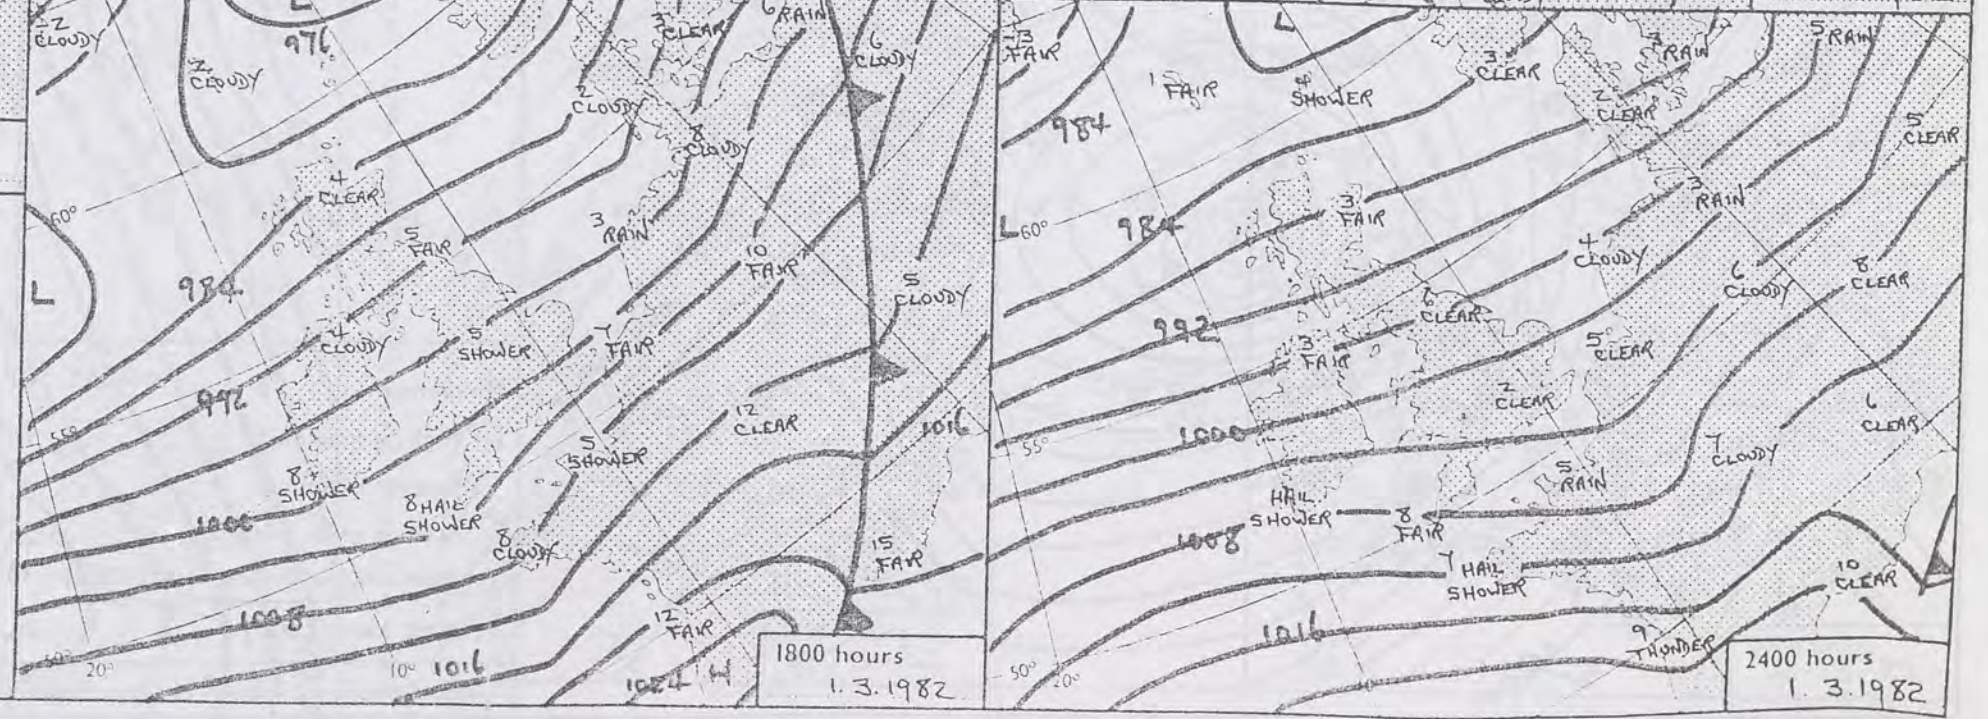 -2
CLOUDY
2
CLOUDY
L
976
3
CLEAR
6
RAIN
6
CLOUDY
2
CLOUDY
8
CLOUDY
4
CLEAR
60°
5
FAIR
3
RAIN
10
FAIR
984
L
5
CLOUDY
4
CLOUDY
5
SHOWER
7
FAIR
992
55°
12
CLEAR
1016
5
SHOWER
8
SHOWER
8 HAIL
SHOWER
1000
8
CLOUDY
15
FAIR
1008
12
FAIR
50°
20°
10°
1016
1024
H
1800 hours
1.3.1982
-3
FAIR
1
FAIR
L
4
SHOWER
3
CLEAR
3
RAIN
5 RAIN
984
2
CLEAR
5
CLEAR
L
60°
984
3
FAIR
3
RAIN
4
CLOUDY
6
CLOUDY
8
CLEAR
992
6
CLEAR
3
FAIR
5
CLEAR
2
CLEAR
6
CLEAR
1000
55°
7
CLOUDY
5
RAIN
HAIL
SHOWER
8
FAIR
1008
7 HAIL
SHOWER
10
CLEAR
1016
9
THUNDER
50°
20°
2400 hours
1.3.1982